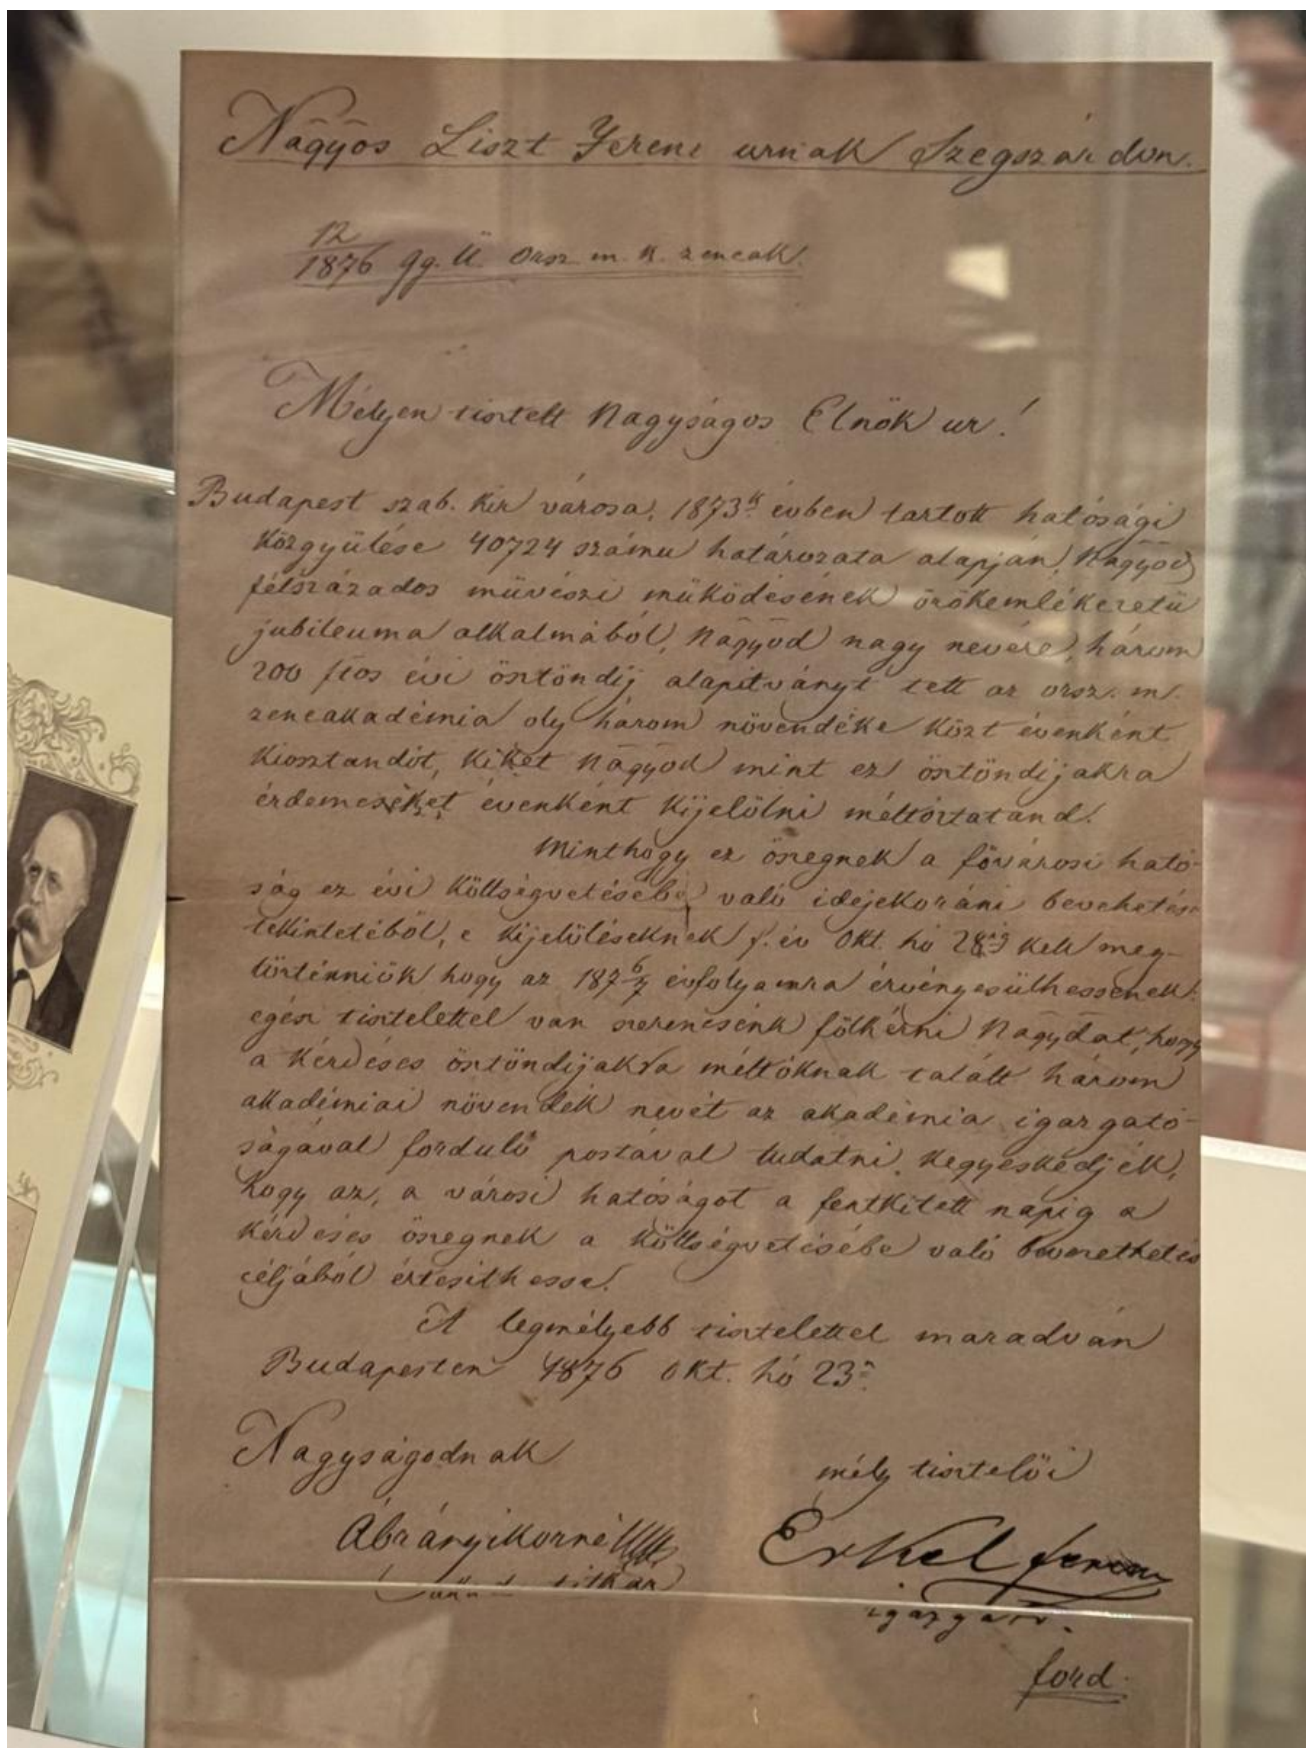 Nāgyos Liszt Ferenc urnak Szegszárdon.
12
1876 gg. Ü. Orsz m. k. zeneak.
Mélyen tisztelt Nagyságos Elnök ur!
Budapest szab. kir városa, 1873ik évben tartott hatósági
közgyülése 40724 számu határozata alapján, Nāgyod
félszázados müvészi müködésének örökemlékezetü
jubileuma alkalmából, Nāgyod nagy nevére, három
200 ftos évi ösztöndij alapitványt tett az orsz. m.
zeneakadémia oly három növendéke közt évenként
kiosztandót, kiket Nāgyod mint ez ösztöndijakra
érdemeseket évenként kijelölni méltóztatand.
Minthogy ez összegnek a fővárosi ható-
ság ez évi költségvetésébe való idejekoráni bevehetése
tekintetéből, e kijelöléseknek f. év Okt. hó 28ig kell meg-
történniök hogy az 1876/7 évfolyamra érvényesülhessenek:
egész tisztelettel van szerencsénk fölkérni Nāgydat, hogy
a kérdéses ösztöndijakra méltóknak talált három
akadémiai növendék nevét az akadémia igazgató-
ságával forduló postával tudatni kegyeskedjék,
hogy az, a városi hatóságot a fentkitett napig a
kérdéses összegnek a költségvetésébe való
céljából értesithesse.
A legmélyebb tisztelettel maradván
Budapesten 1876 Okt. hó 23n
Nagyságodnak
mély tisztelői
Ábrányi Kornél
titkár
Erkel Ferenc
igazgató.
ford.